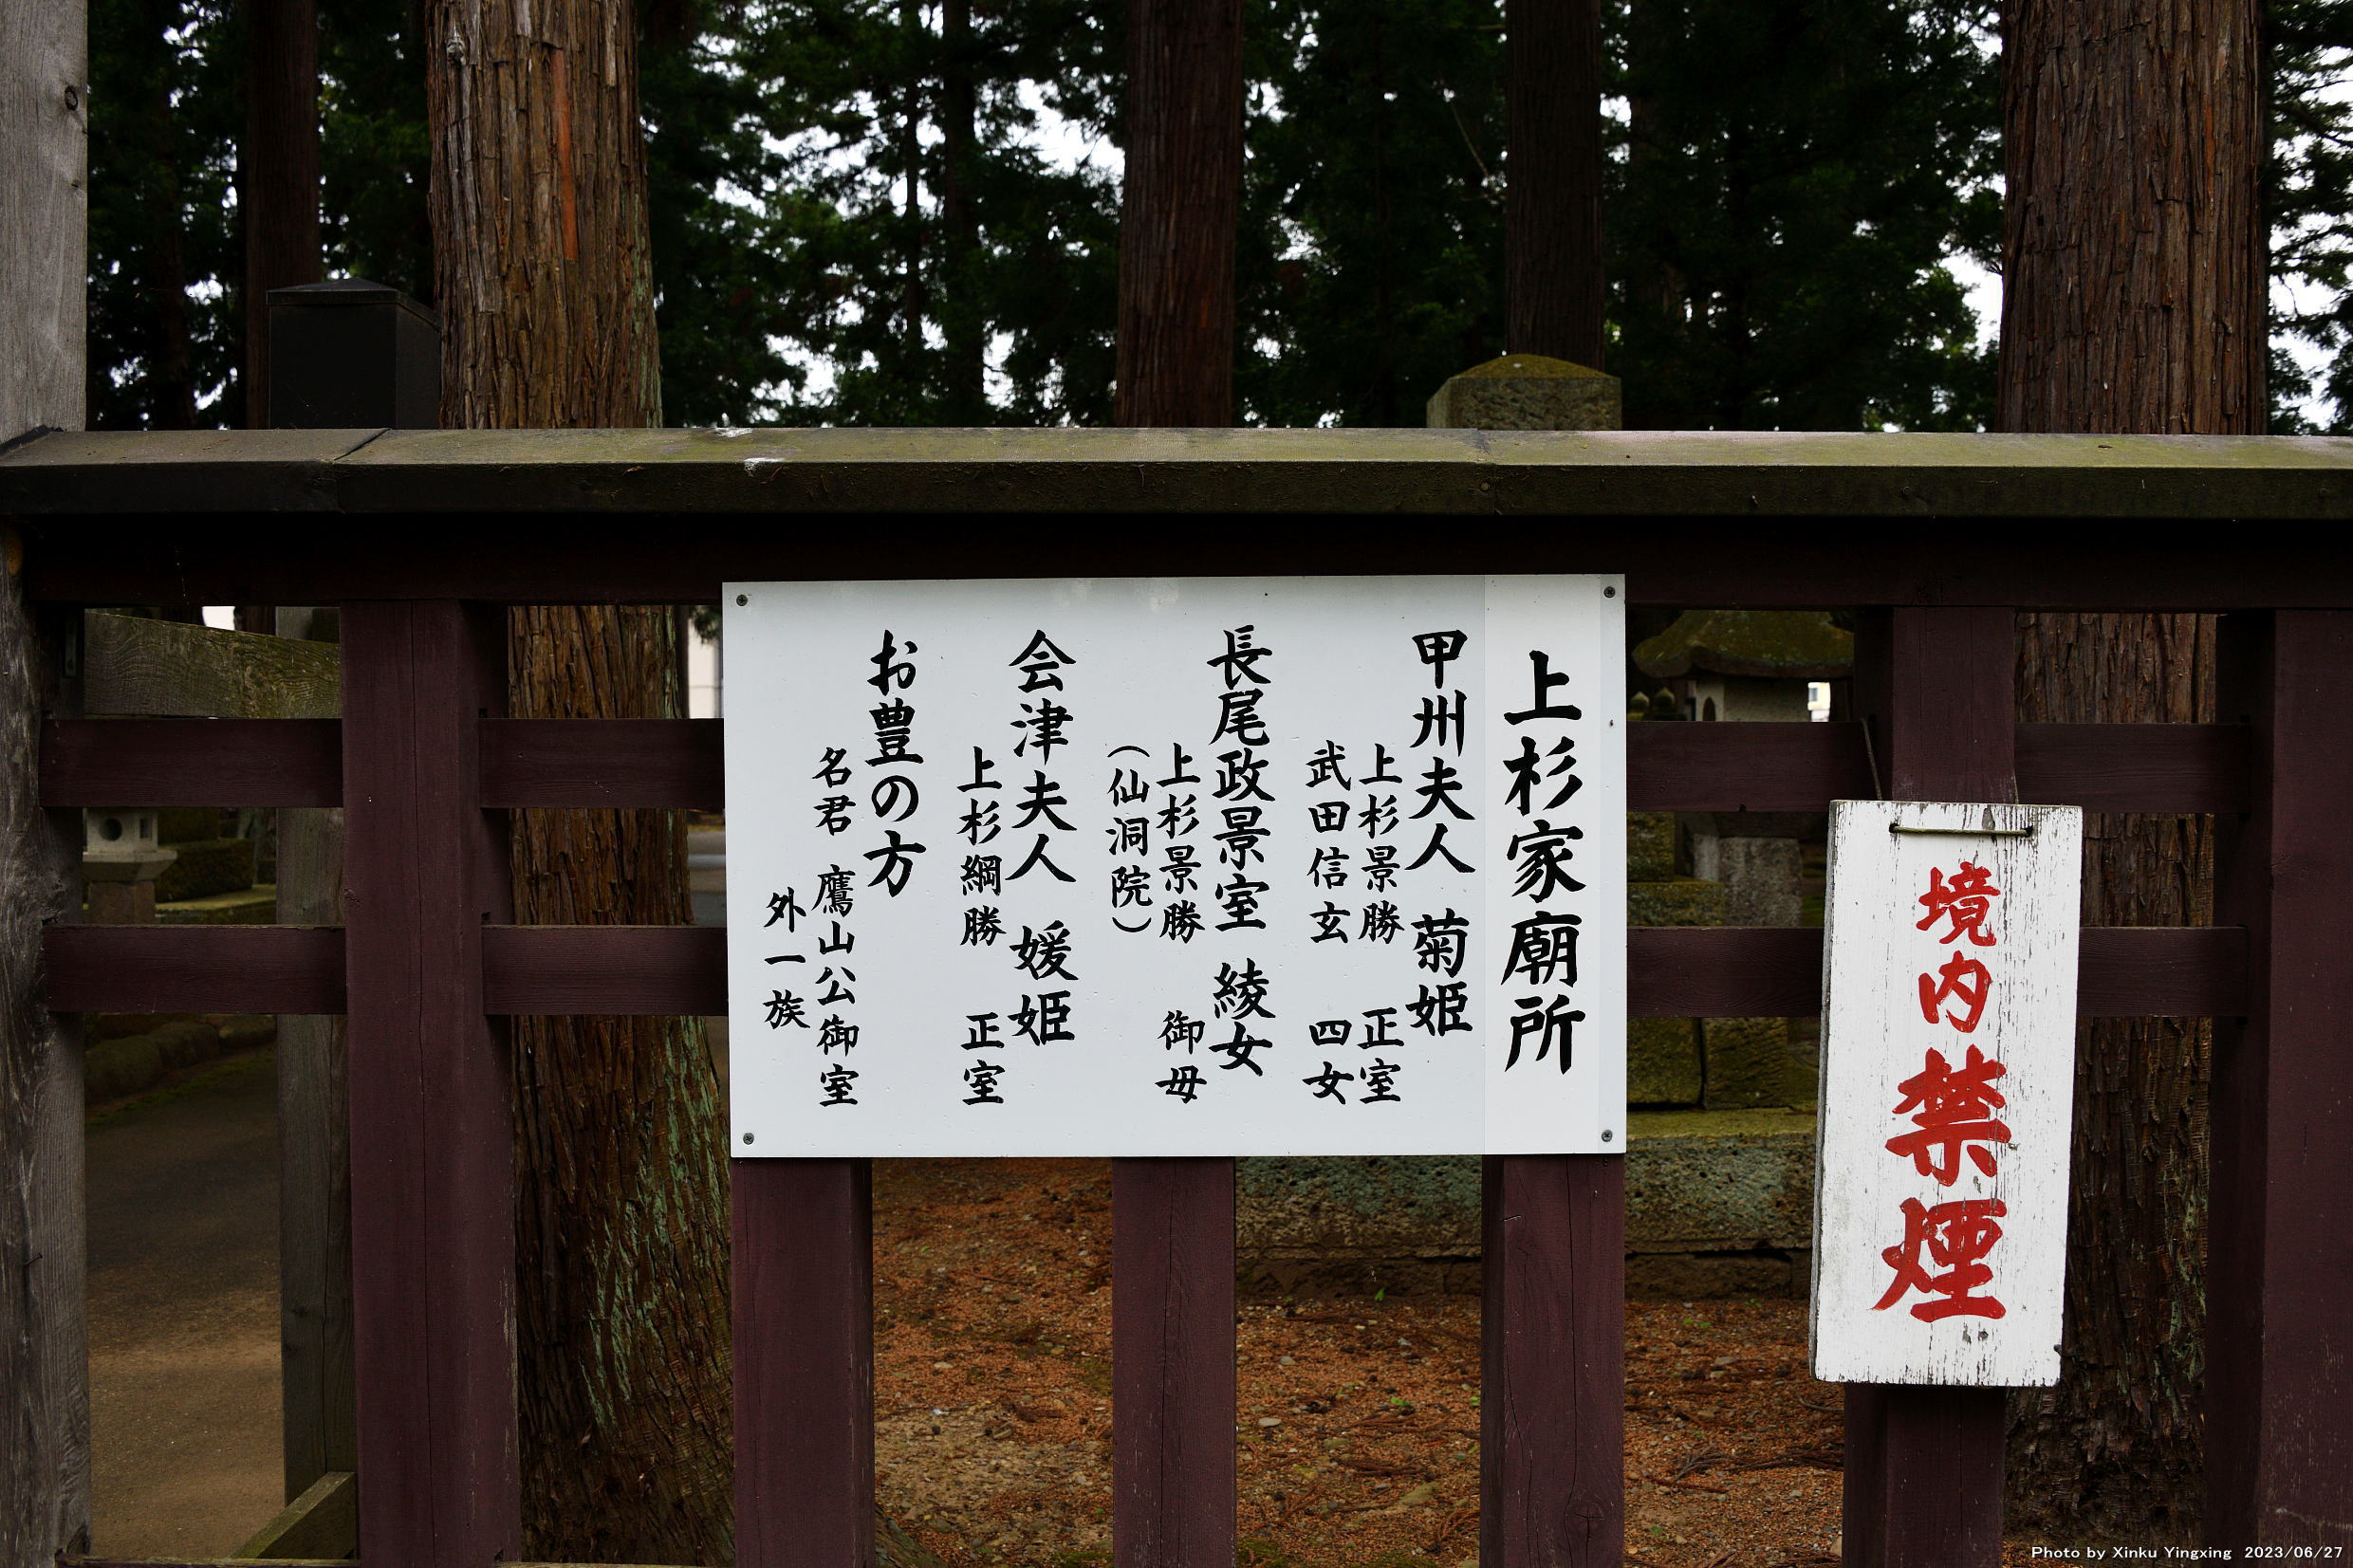 上杉家廟所
甲州夫人 菊姫
上杉景勝 正室
武田信玄 四女
長尾政景室 綾女
上杉景勝 御母
(仙洞院)
会津夫人 媛姫
上杉綱勝 正室
お豊の方
名君 鷹山公御室
外一族
境内禁煙
Photo by Xinku Yingxing 2023/06/27